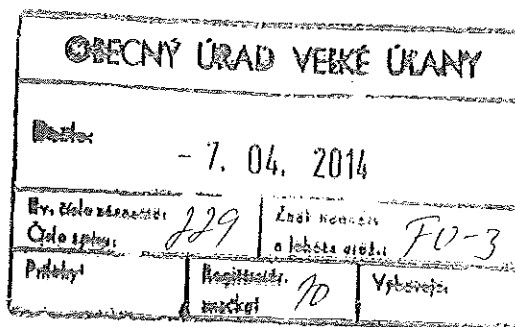 OBECNÝ ÚRAD VEĽKÉ ÚĽANY
Došlo:
- 7. 04. 2014
Ev. číslo záznamu:
Číslo spisu: 229
Znak hodnoty
a lehota ulož.: FO-3
Prílohy:
Registrat. 10
značka:
Vybavuje: